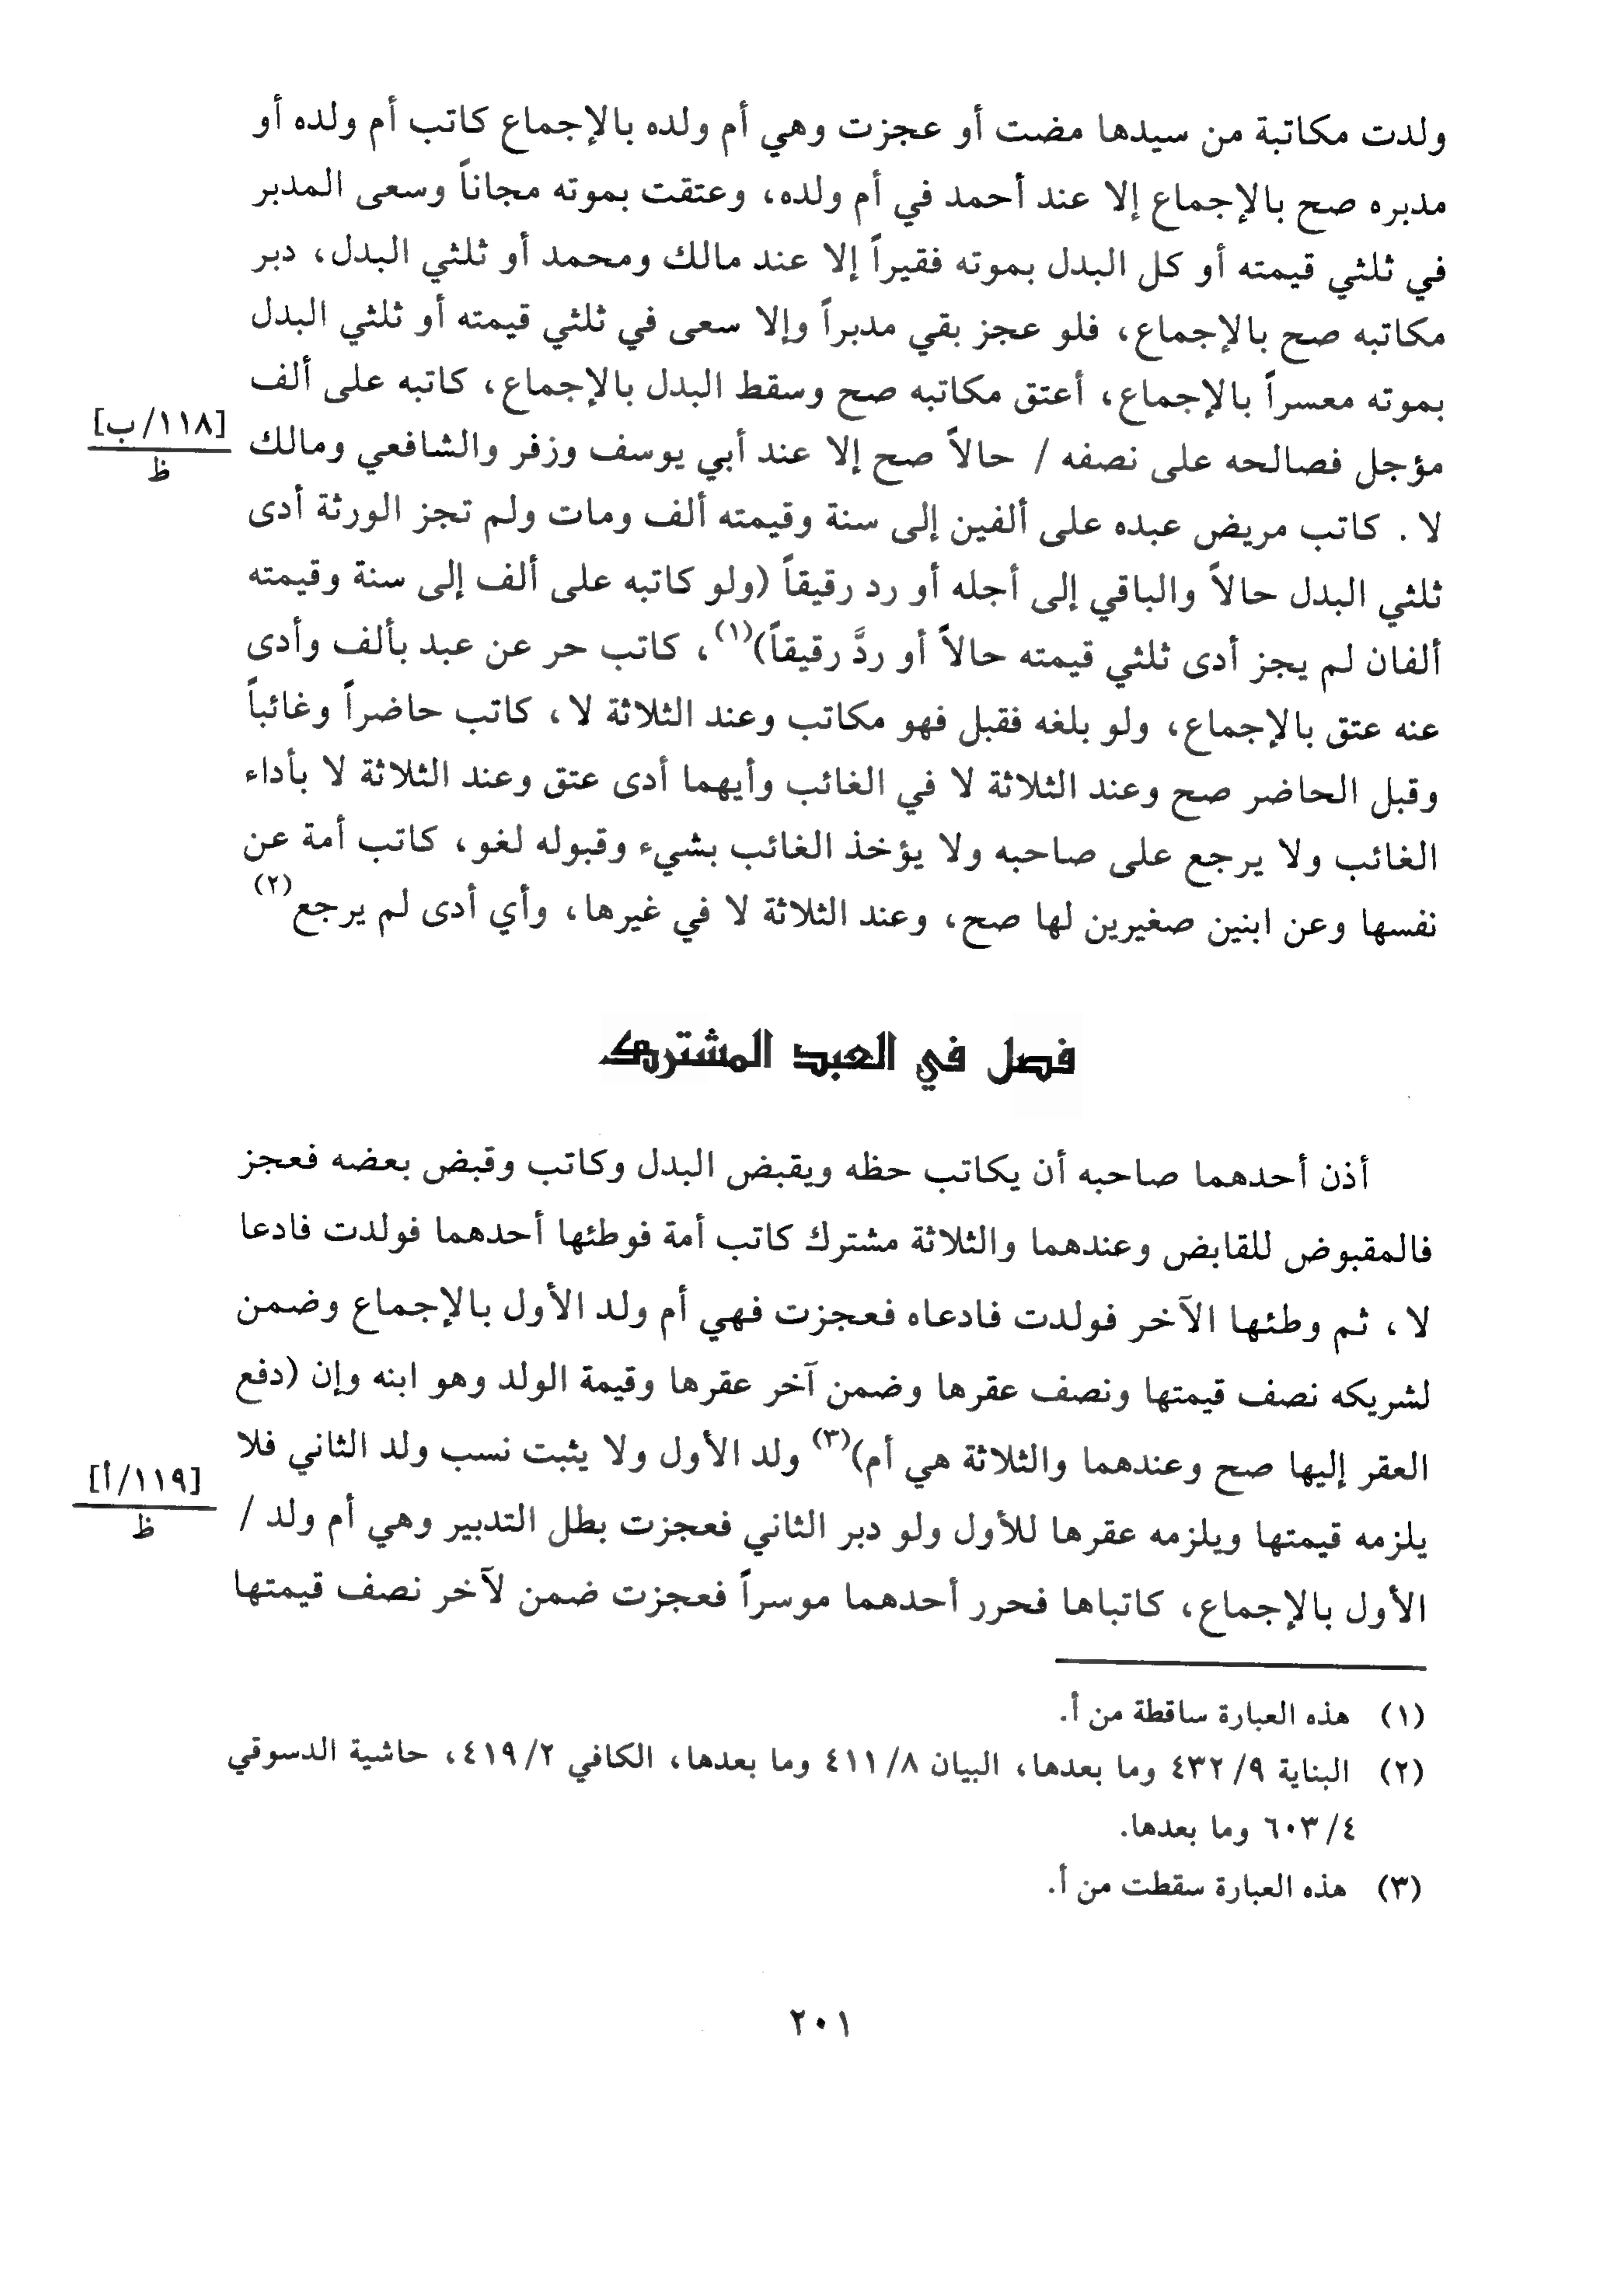 ولدت مكاتبة من سيدها مضت أو عجزت وهي أم ولده بالإجماع كاتب أم ولده أو
مدبره صح بالإجماع إلا عند أحمد في أم ولده، وعتقت بموته مجاناً وسعى المدبر
في ثلثي قيمته أو كل البدل بموته فقيراً إلا عند مالك ومحمد أو ثلثي البدل، دبر
مكاتبه صح بالإجماع، فلو عجز بقي مدبراً وإلا سعى في ثلثي قيمته أو ثلثي البدل
بموته معسراً بالإجماع، أعتق مكاتبه صح وسقط البدل بالإجماع، كاتبه على ألف
[١١٨/ ب]
ظ
مؤجل فصالحه على نصفه / حالاً صح إلا عند أبي يوسف وزفر والشافعي ومالك
لا. كاتب مريض عبده على ألفين إلى سنة وقيمته ألف ومات ولم تجز الورثة أدى
ثلثي البدل حالاً والباقي إلى أجله أو رد رقيقاً (ولو كاتبه على ألف إلى سنة وقيمته
ألفان لم يجز أدى ثلثي قيمته حالاً أو ردَّ رقيقاً)(١)، كاتب حر عن عبد بألف وأدى
عنه عتق بالإجماع، ولو بلغه فقبل فهو مكاتب وعند الثلاثة لا، كاتب حاضراً وغائباً
وقبل الحاضر صح وعند الثلاثة لا في الغائب وأيهما أدى عتق وعند الثلاثة لا بأداء
الغائب ولا يرجع على صاحبه ولا يؤخذ الغائب بشيء وقبوله لغو، كاتب أمة عن
نفسها وعن ابنين صغيرين لها صح، وعند الثلاثة لا في غيرها، وأي أدى لم يرجع(٢)
فصل في العبد المشترك
أذن أحدهما صاحبه أن يكاتب حظه ويقبض البدل وكاتب وقبض بعضه فعجز
فالمقبوض للقابض وعندهما والثلاثة مشترك كاتب أمة فوطئها أحدهما فولدت فادعا
لا، ثم وطئها الآخر فولدت فادعاه فعجزت فهي أم ولد الأول بالإجماع وضمن
لشريكه نصف قيمتها ونصف عقرها وضمن آخر عقرها وقيمة الولد وهو ابنه وإن (دفع
العقر إليها صح وعندهما والثلاثة هي أم)(٣) ولد الأول ولا يثبت نسب ولد الثاني فلا
[١١٩/ أ]
ظ
يلزمه قيمتها ويلزمه عقرها للأول ولو دبر الثاني فعجزت بطل التدبير وهي أم ولد /
الأول بالإجماع، كاتباها فحرر أحدهما موسراً فعجزت ضمن لآخر نصف قيمتها
(١) هذه العبارة ساقطة من أ.
(٢) البناية ٩/ ٤٣٢ وما بعدها، البيان ٨/ ٤١١ وما بعدها، الكافي ٢/ ٤١٩، حاشية الدسوقي
٤/ ٦٠٣ وما بعدها.
(٣) هذه العبارة سقطت من أ.
٢٠١